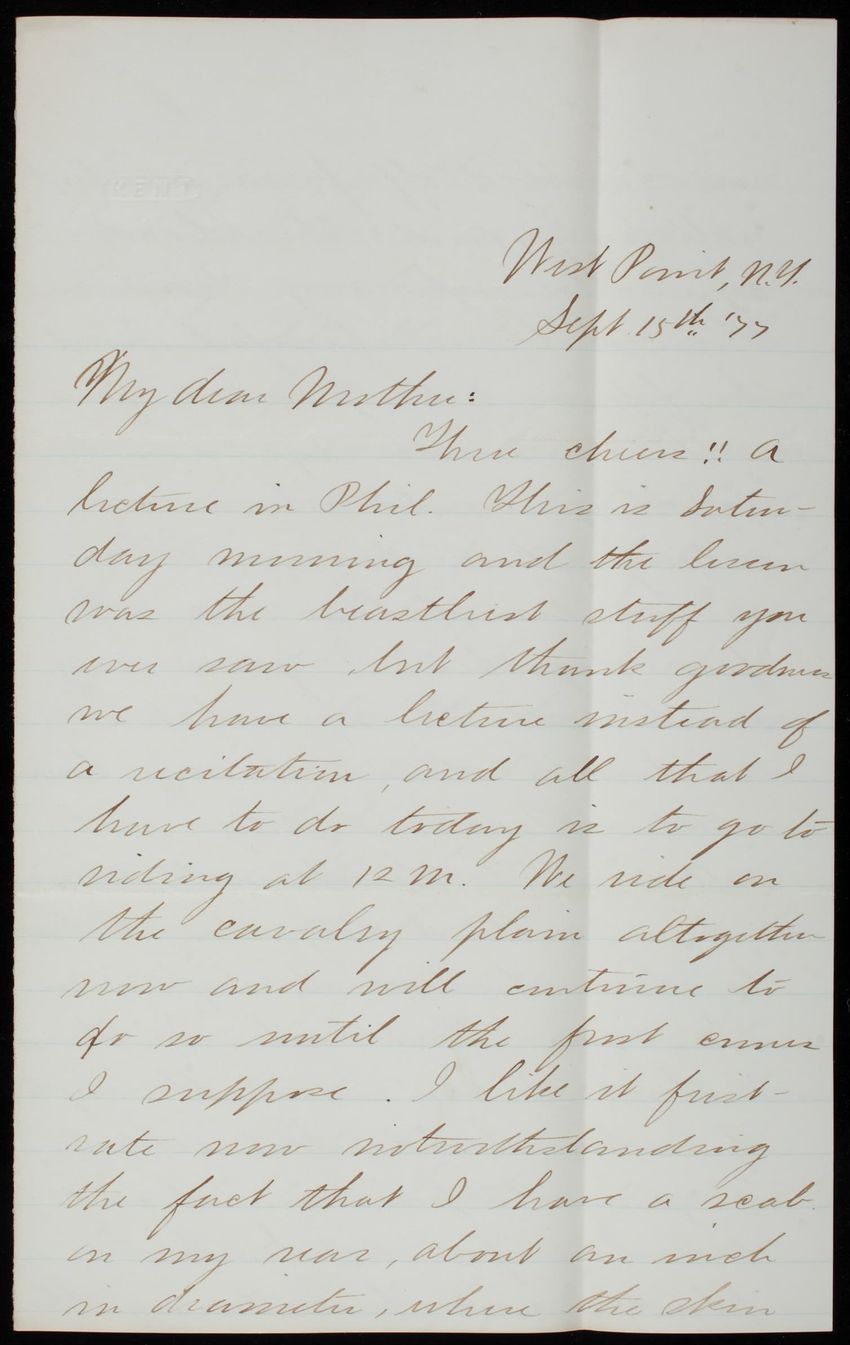 KENT
West Point, N.Y.
Sept. 15th '77
My dear Mother:
Three cheers!! A
lecture in Phil. This is Satur-
day morning and the lesson
was the beastliest stuff you
ever saw but thank goodness
we have a lecture instead of
a recitation, and all that I
have to do today is to go to
riding at 12 M. We ride on
the cavalry plain altogether
now and will continue to
do so until the frost comes
I suppose. I like it first-
rate now notwithstanding
the fact that I have a scab
on my rear, about an inch
in diameter, where the skin